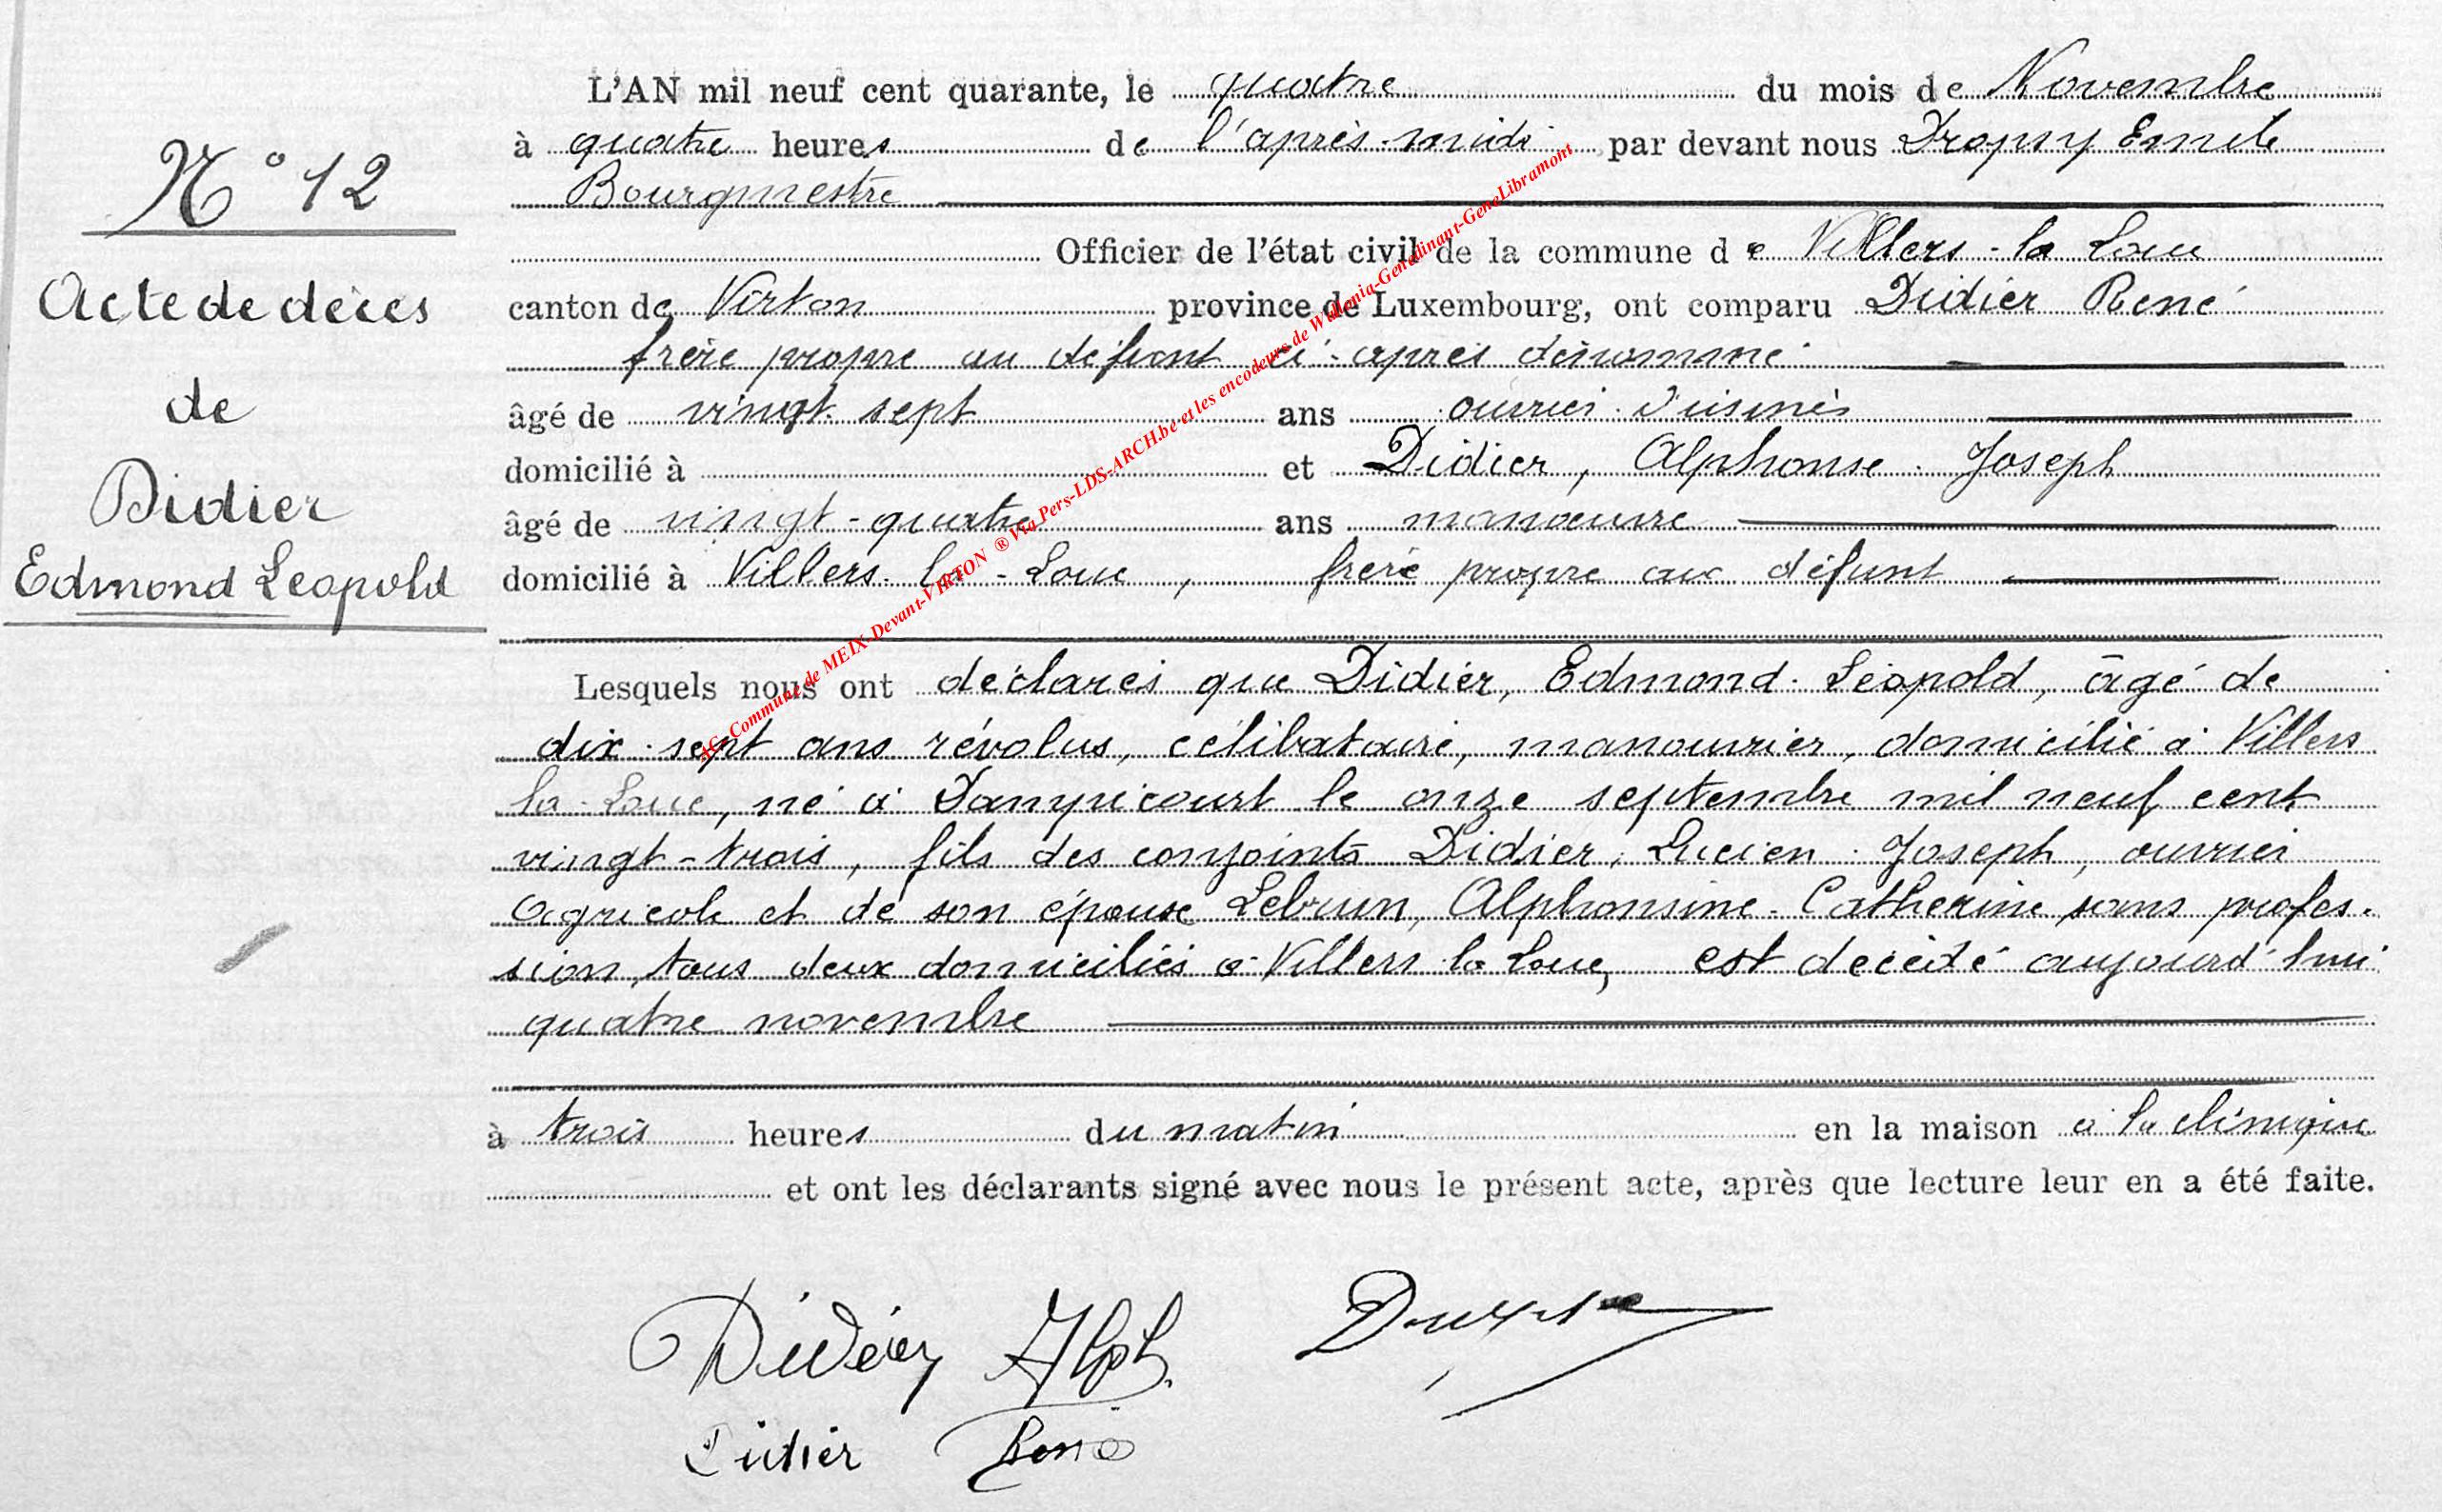 N° 12
Acte de décès
de
Didier
Edmond Léopold
L'AN mil neuf cent quarante, le quatre du mois de Novembre
à quatre heures de l'après-midi par devant nous Dropsy Emile
Bourgmestre
Officier de l'état civil de la commune de Villers-la Loue
canton de Virton province de Luxembourg, ont comparu Didier René
frère propre au défunt ci-après dénommé
âgé de vingt-sept ans ouvrier d'usines
domicilié à et Didier, Alphonse-Joseph
âgé de vingt-quatre ans manœuvre
domicilié à Villers-la-Loue, frère propre au défunt
Lesquels nous ont déclarés que Didier, Edmond-Léopold, âgé de
dix-sept ans révolus, célibataire, manouvrier, domicilié à Villers
la-Loue, né à Dampicourt le onze septembre mil neuf cent
vingt-trois, fils des conjoints Didier, Lucien-Joseph, ouvrier
agricole et de son épouse Lebrun, Alphonsine-Catherine sans profes-
sion, tous deux domiciliés à Villers-la Loue, est décédé aujourd'hui
quatre novembre
à trois heures du matin en la maison à la clinique
et ont les déclarants signé avec nous le présent acte, après que lecture leur en a été faite.
Didier Alph.
Didier René
AC-Commune de MEIX-Devant-VIRTON ® Via Pers-LDS-ARCH.be-et les encodeurs de Wallonia-Genedinant-GeneLibramont